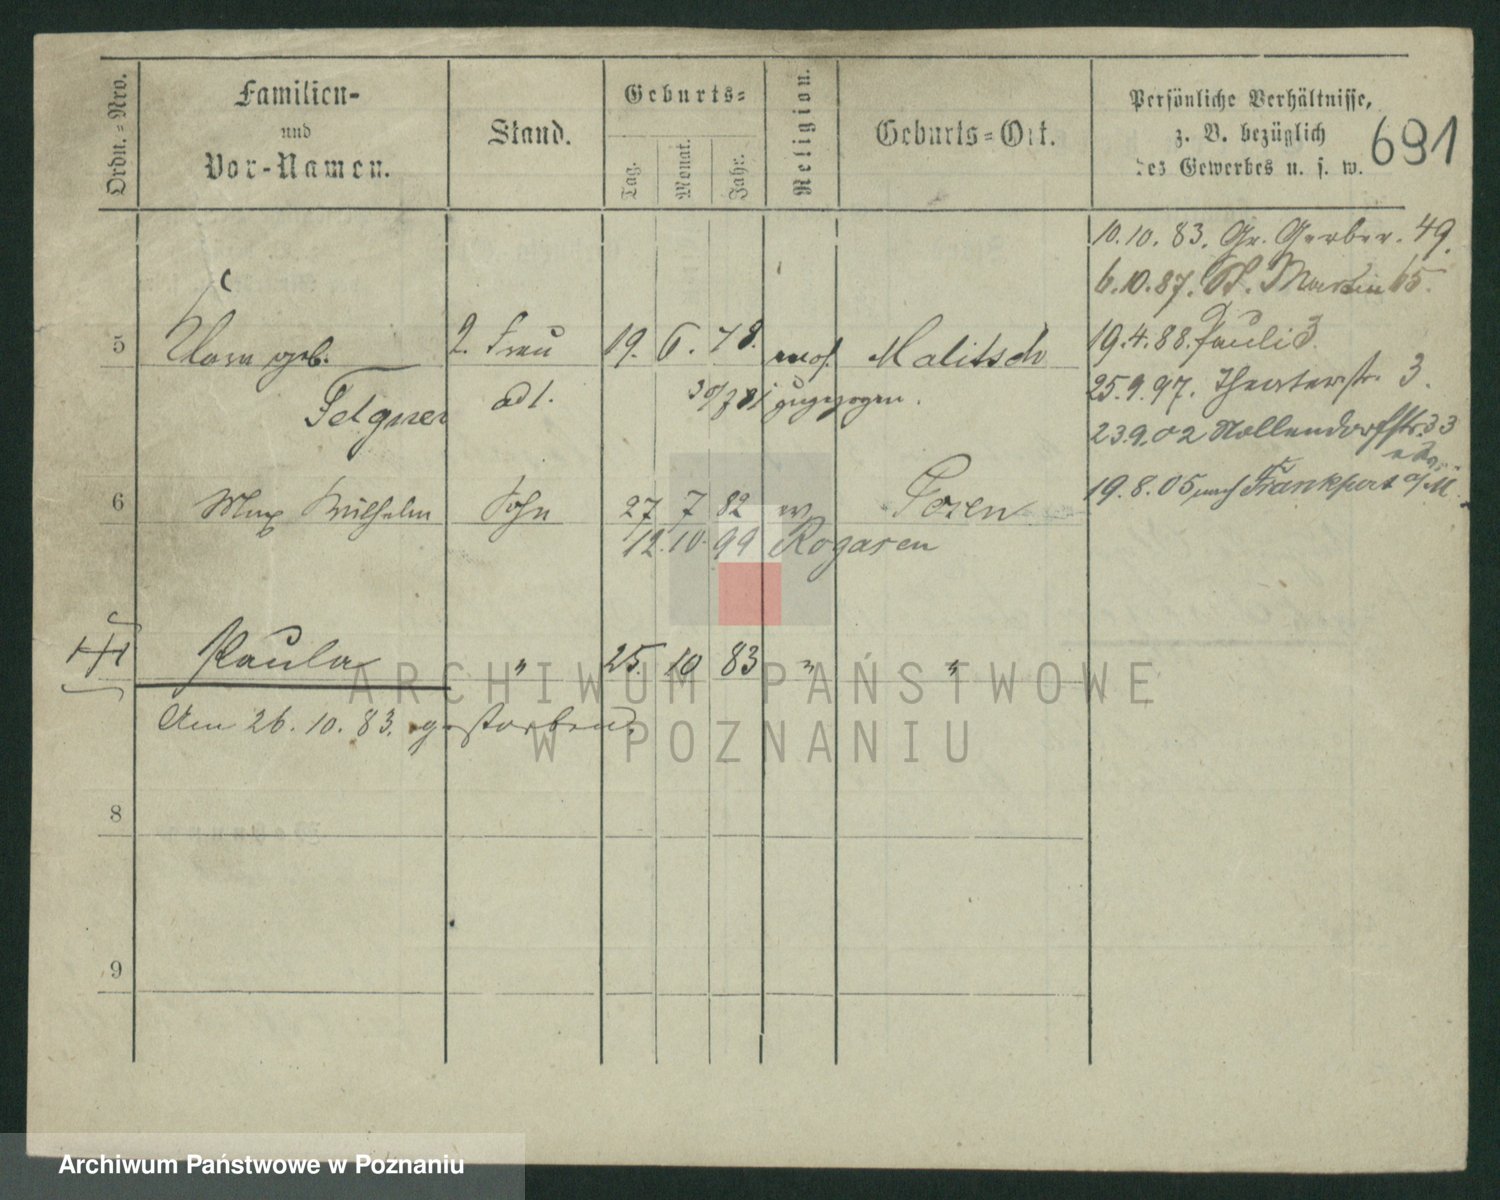 Ordn.=Nro.
Familien-
und
Vor-Namen.
Stand.
Geburts=
Tag.
Monat.
Jahr.
Religion.
Geburts=Ort.
Persönliche Verhältnisse,
z. B. bezüglich
des Gewerbes u. s. w.
691
10.10.83. Gr. Gerber. 49.
6.10.87. St. Martin 65.
5 geb. 2. Frau 19. 6. 78. Malitsch
19.4.88. Pauli 3.
Felgner zugezogen.
25.9.97. Theaterstr. 3.
23.9.02 Nollendorfstr. 33
6 Max Wilhelm Sohn 27 7 82 Posen
19.8.05 nach Frankfurt a/M.
12. 10. 99 Rogasen
Paula " 25. 10 83 " "
Am 26. 10. 83. gestorben.
8
9
ARCHIWUM PAŃSTWOWE
W POZNANIU
Archiwum Państwowe w Poznaniu